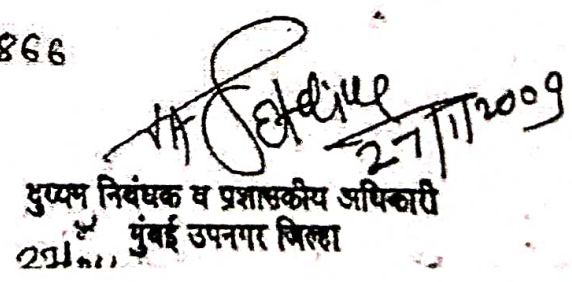 866
27/1/2009
दुय्यम निबंधक व प्रशासकीय अधिकारी
मुंबई उपनगर जिल्हा